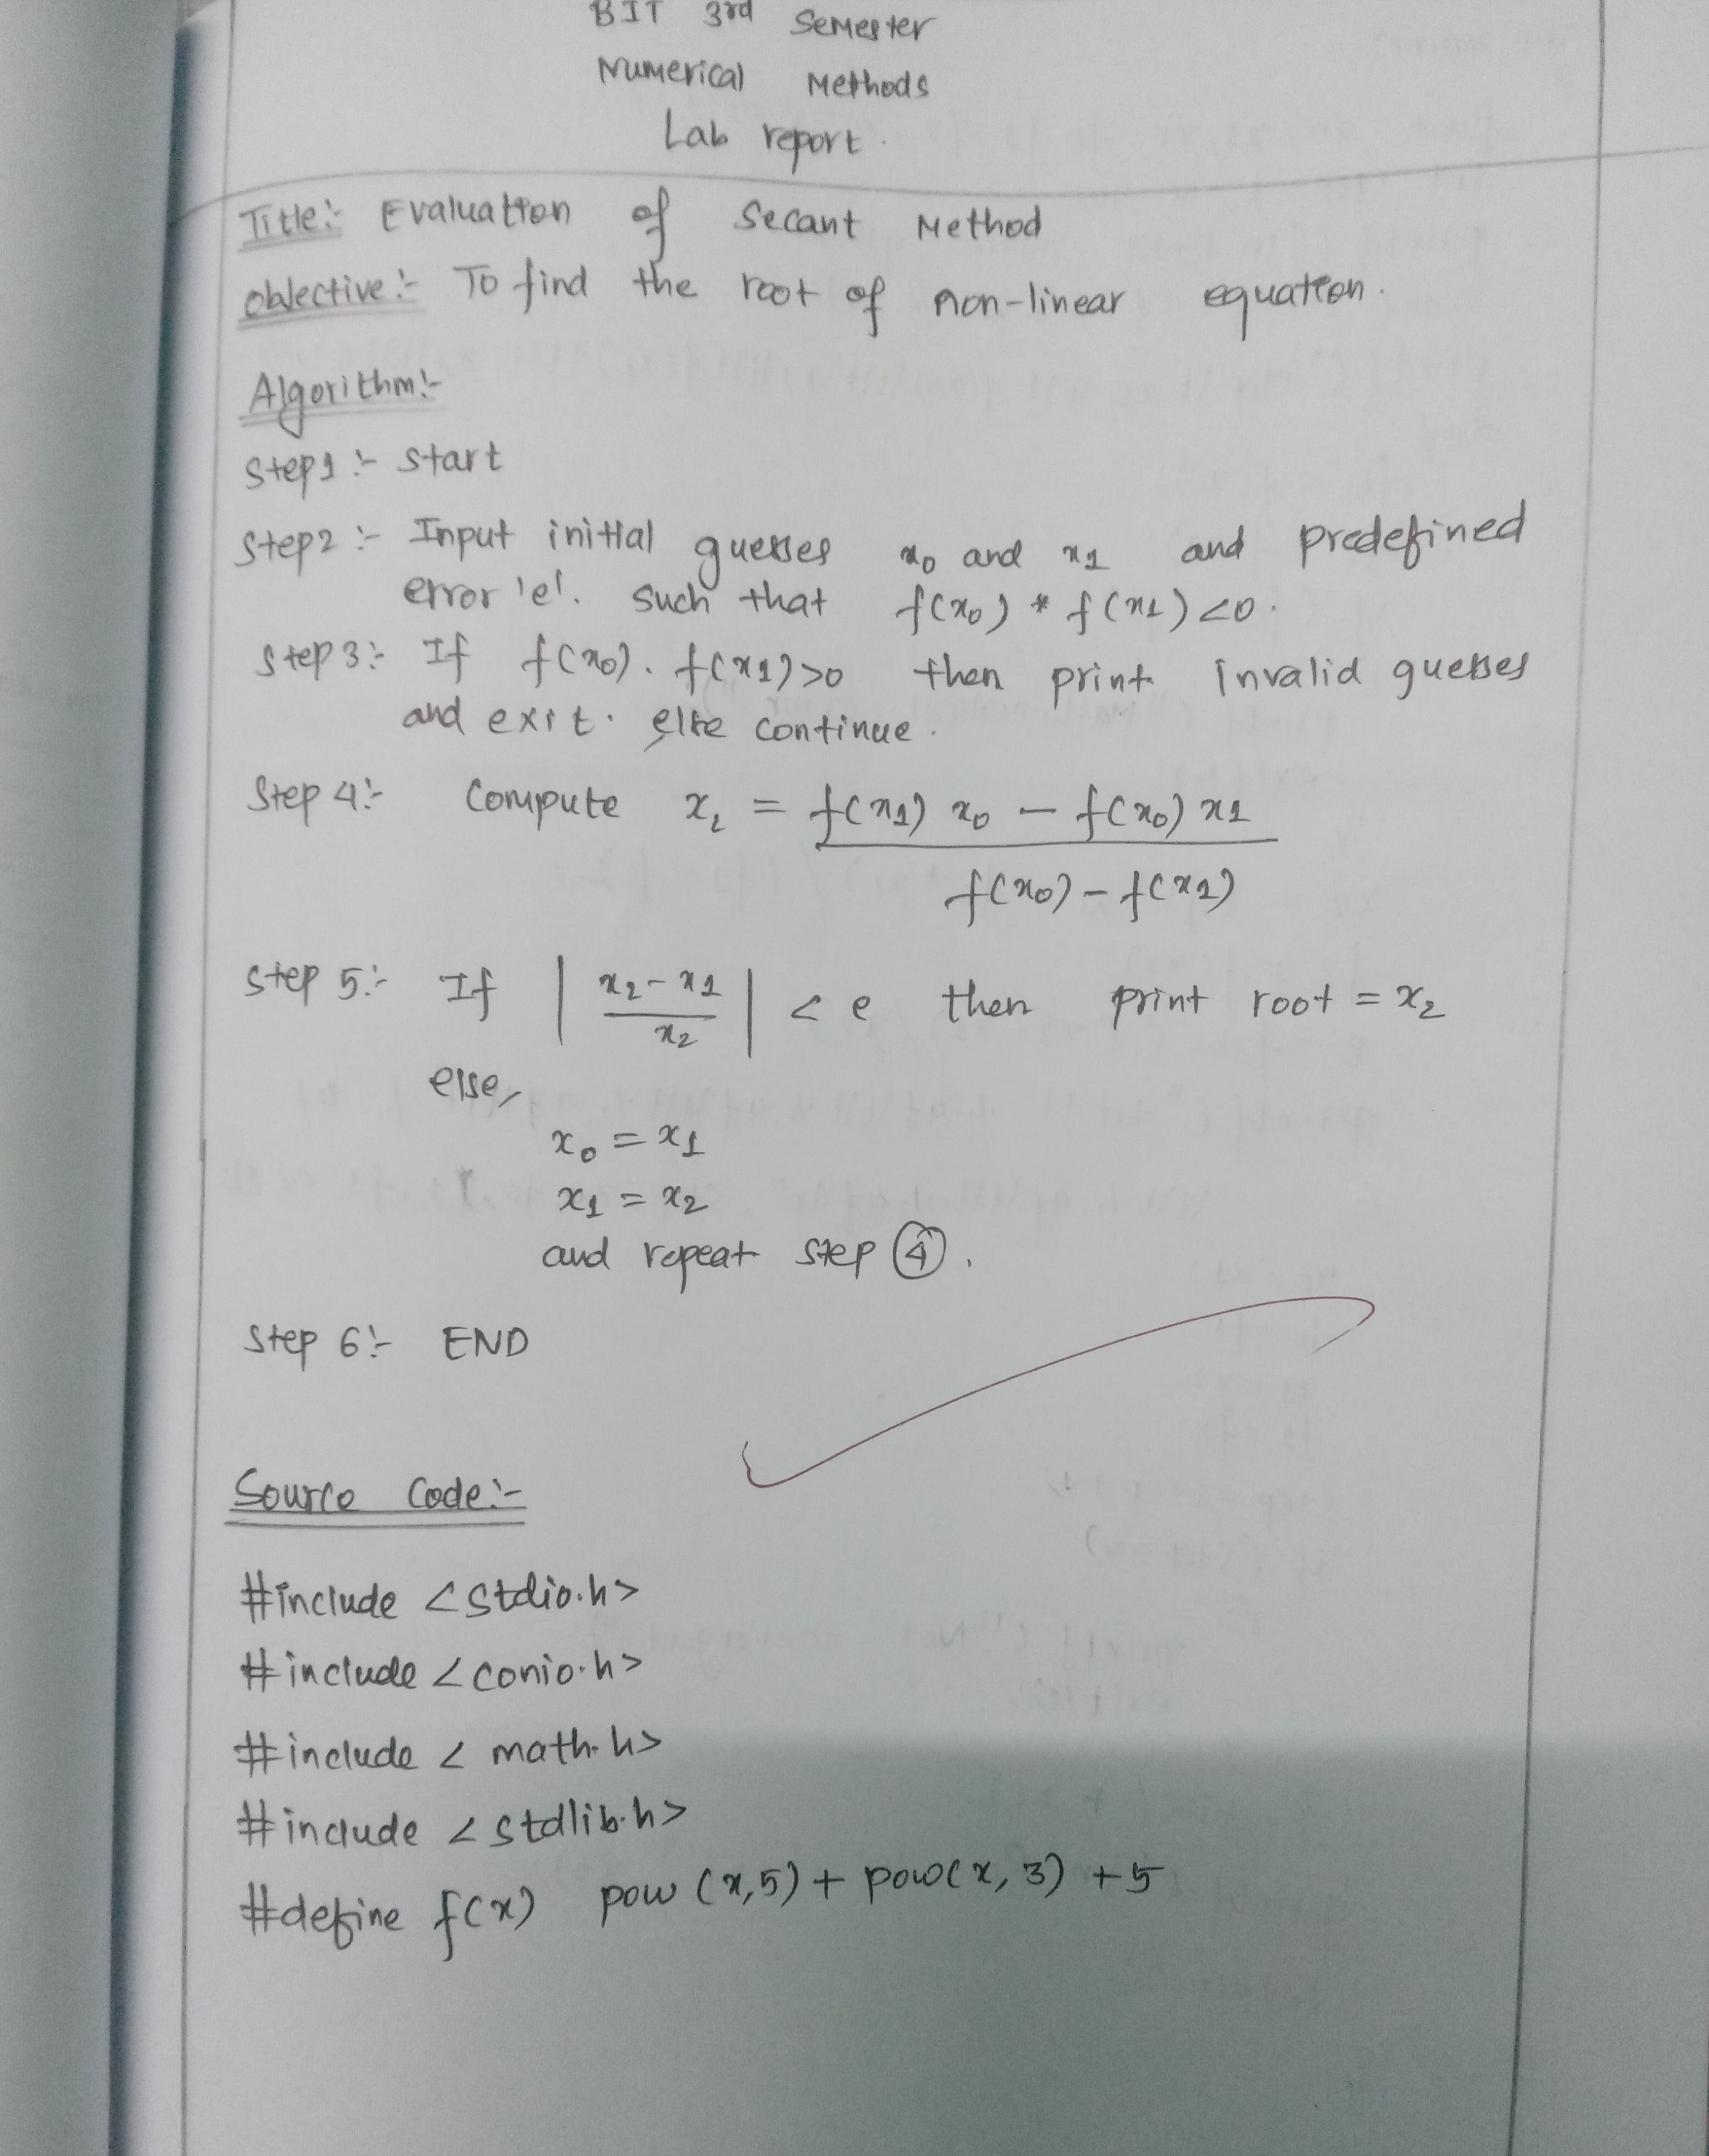 BIT 3rd Semester
Numerical Methods
Lab report.
Title:- Evaluation of Secant Method
Objective:- To find the root of non-linear equation.
Algorithm:-
Step1:- start
Step2:- Input initial guesses x0 and x1 and predefined
error 'e'. such that f(x0) * f(x1) <0.
Step 3:- If f(x0). f(x1)>0 then print invalid guesses
and exit. else continue.
Step 4:- Compute x2 = f(x1) x0 - f(x0) x1
f(x0) - f(x1)
Step 5:- If | x2 - x1 / x2 | < e then print root = x2
else,
x0 = x1
x1 = x2
and repeat step ④.
Step 6:- END
Source Code:-
#include <stdio.h>
#include <conio.h>
#include < math.h>
#include <stdlib.h>
#define f(x) pow (x,5) + pow(x, 3) +5